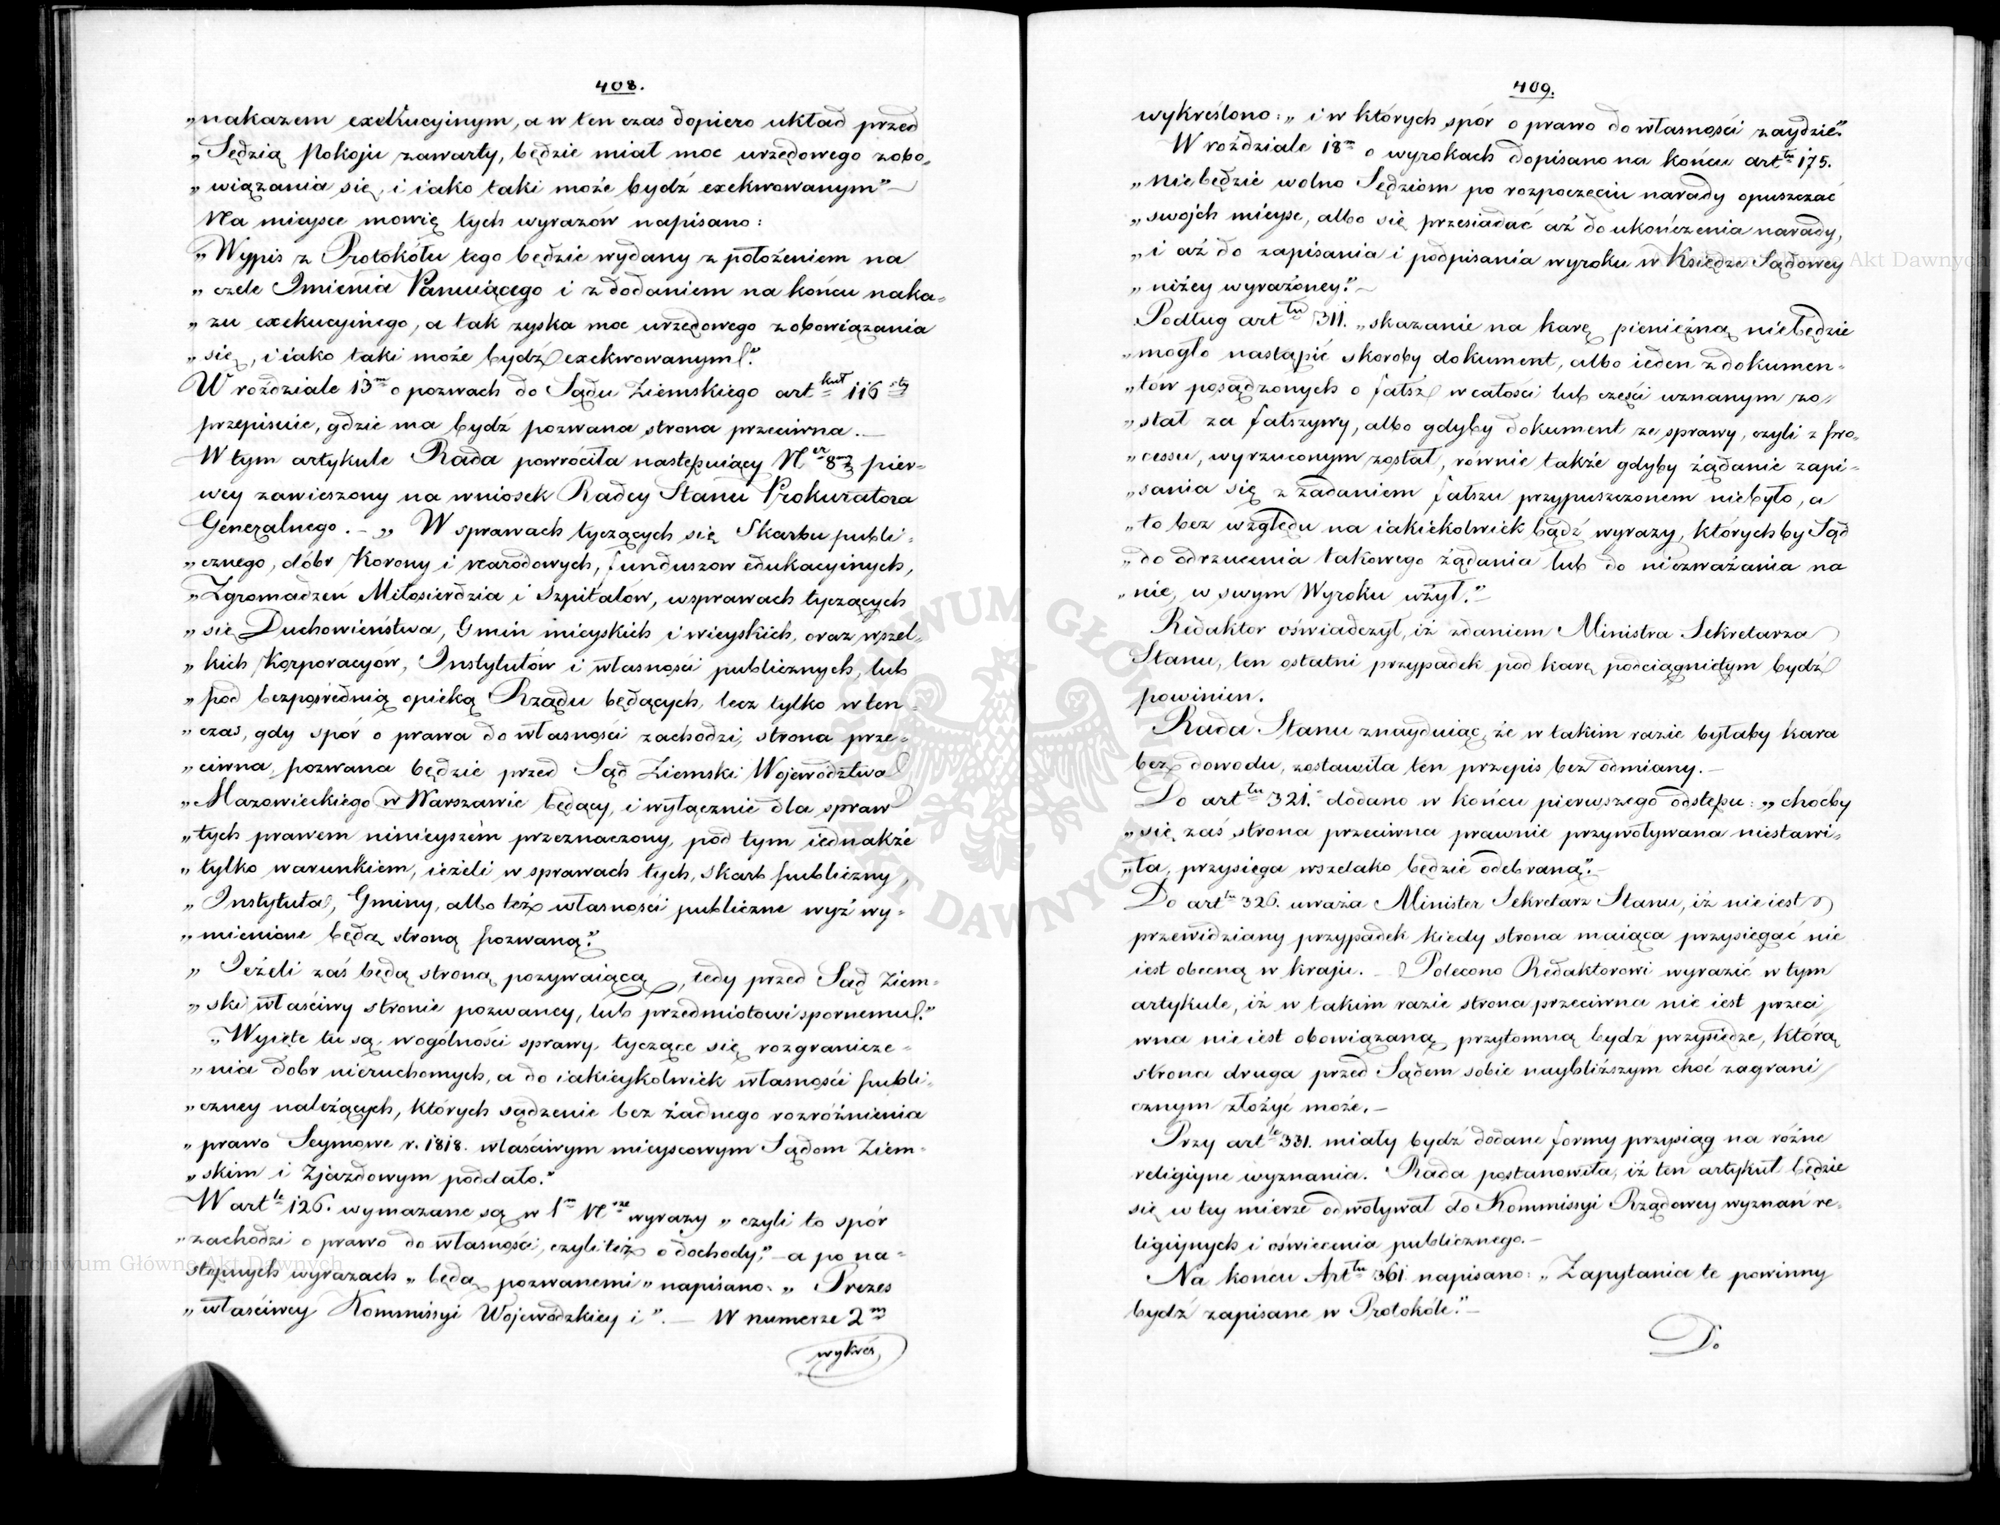 408.
„nakazem exekucyinym, a w ten czas dopiero układ przed
„Sędzią Pokoju zawarty, będzie miał moc urzędowego zobo-
„wiązania się, i iako taki może bydź exekwowanym”—
Na mieysce mowię tych wyrazów napisano:
„Wypis z Protokółu tego będzie wydany z położeniem na
„czele Imienia Panuiącego i z dodaniem na końcu naka-
„zu exekucyinego, a tak zyska moc urzędowego zobowiązania
„się, i iako taki może bydź exekwowanym.”
W rozdziale 13m o pozwach do Sądu Ziemskiego artkuł 116sty
przepisuie, gdzie ma bydź pozwana strona przeciwna.—
W tym artykule Rada powróciła następuiący Ner 8my pier-
wey zawieszony na wniosek Radcy Stanu Prokuratora
Generalnego.— „W sprawach tyczących się Skarbu publi-
„cznego, dóbr Korony i narodowych, funduszow edukacyinych,
„Zgromadzeń Miłosierdzia i Szpitalów, w sprawach tyczących
„się Duchowieństwa, Gmin mieyskich i wieyskich, oraz wszel-
„kich Korporacyów, Instytutów i własności publicznych, lub
„pod bezpośrednią opieką Rządu będących, lecz tylko w ten-
„czas, gdy spór o prawa do własności zachodzi, strona prze-
„ciwna, pozwana będzie przed Sąd Ziemski Województwa
„Mazowieckiego w Warszawie będący, i wyłącznie dla spraw
„tych prawem ninieyszém przeznaczony, pod tym iednakże
„tylko warunkiem, ieżeli w sprawach tych, skarb publiczny,
„Instytuta, Gminy, albo też własności publiczne wyż wy-
„mienione będą stroną pozwaną.”
„Ieżeli zaś będą stroną pozywaiącą, tedy przed Sąd Ziem-
„ski właściwy stronie pozwaney, lub przedmiotowi spornemu.”
„Wyięte tu są wogólności sprawy tyczące się rozgranicze-
„nia dobr nieruchomych, a do iakieykolwiek własności publi-
„czney należących, których sądzenie bez żadnego rozróżnienia
„prawo Seymowe r. 1818. właściwym mieyscowym Sądom Ziem-
„skim i Zjazdowym poddało.”
W artle 126. wymazane są w 1m Nrze wyrazy „czyli to spór
„zachodzi o prawo do własności, czyli też o dochody;”—a po na-
stępnych wyrazach „będą pozwanemi” napisano: „Prezes
„właściwey Kommissyi Wojewódzkiey i”.— W numerze 2m
wykréś
409.
wykreślono: „i w których spór o prawo do własności zaydzie.”
W rozdziale 18m o wyrokach dopisano na końcu arttu 175.
„Nie będzie wolno Sędziom po rozpoczęciu narady opuszczać
„swojch mieysc, albo się przesiadać aż do ukończenia narady,
„i aż do zapisania i podpisania wyroku w Księdze Sądowey
„niżey wyrażoney.”—
Podług arttu 311. „skazanie na karę pieniężną nie będzie
„mogło nastąpić skoroby dokument, albo ieden z dokumen-
„tów posądzonych o fałsz w całości lub części uznanym zo-
„stał za fałszywy, albo gdyby dokument ze sprawy, czyli z pro-
„cessu, wyrzuconym został, równie także gdyby żądanie zapi-
„sania się z zadaniem fałszu przypuszczonem nie było, a
„to bez względu na iakiekolwiek bądź wyrazy, których by Sąd
„do odrzucenia takowego żądania lub do niezważania na
„nie, w swym Wyroku użył.”—
Redaktor oświadczył, iż zdaniem Ministra Sekretarza
Stanu, ten ostatni przypadek pod karę podciągniętym bydź
powinien.
Rada Stanu znayduiąc, że w takim razie byłaby kara
bez dowodu, zostawiła ten przepis bez odmiany.—
Do arttu 321. dodano w końcu pierwszego odstępu: „choćby
„się zaś strona przeciwna prawnie przywoływana niestawi-
„ła, przysięga wszelako będzie odebraną.”—
Do arttu 326. uważa Minister Sekretarz Stanu, iż nie iest
przewidziany przypadek kiedy strona maiąca przysięgać nie
iest obecną w kraju.— Polecono Redaktorowi wyrazić w tym
artykule, iż w takim razie strona przeciwna nie iest przeci
wna nie iest obowiązaną przytomną bydź przysiędze, którą
strona druga przed Sądem sobie naybliższym choć zagrani
cznym złożyć może.—
Przy artle 331. miały bydź dodane formy przysiąg na różne
religiyne wyznania. Rada postanowiła, iż ten artykuł będzie
się w tey mierze odwoływał do Kommissyi Rządowey wyznań re-
ligiynych i oświecenia publicznego.—
Na końcu Arttu 361. napisano: „Zapytania te powinny
bydź zapisane w Protokóle.”—
Do
Archiwum Główne Akt Dawnych
Archiwum Główne Akt Dawnych
ARCHIWUM GŁÓWNE AKT DAWNYCH